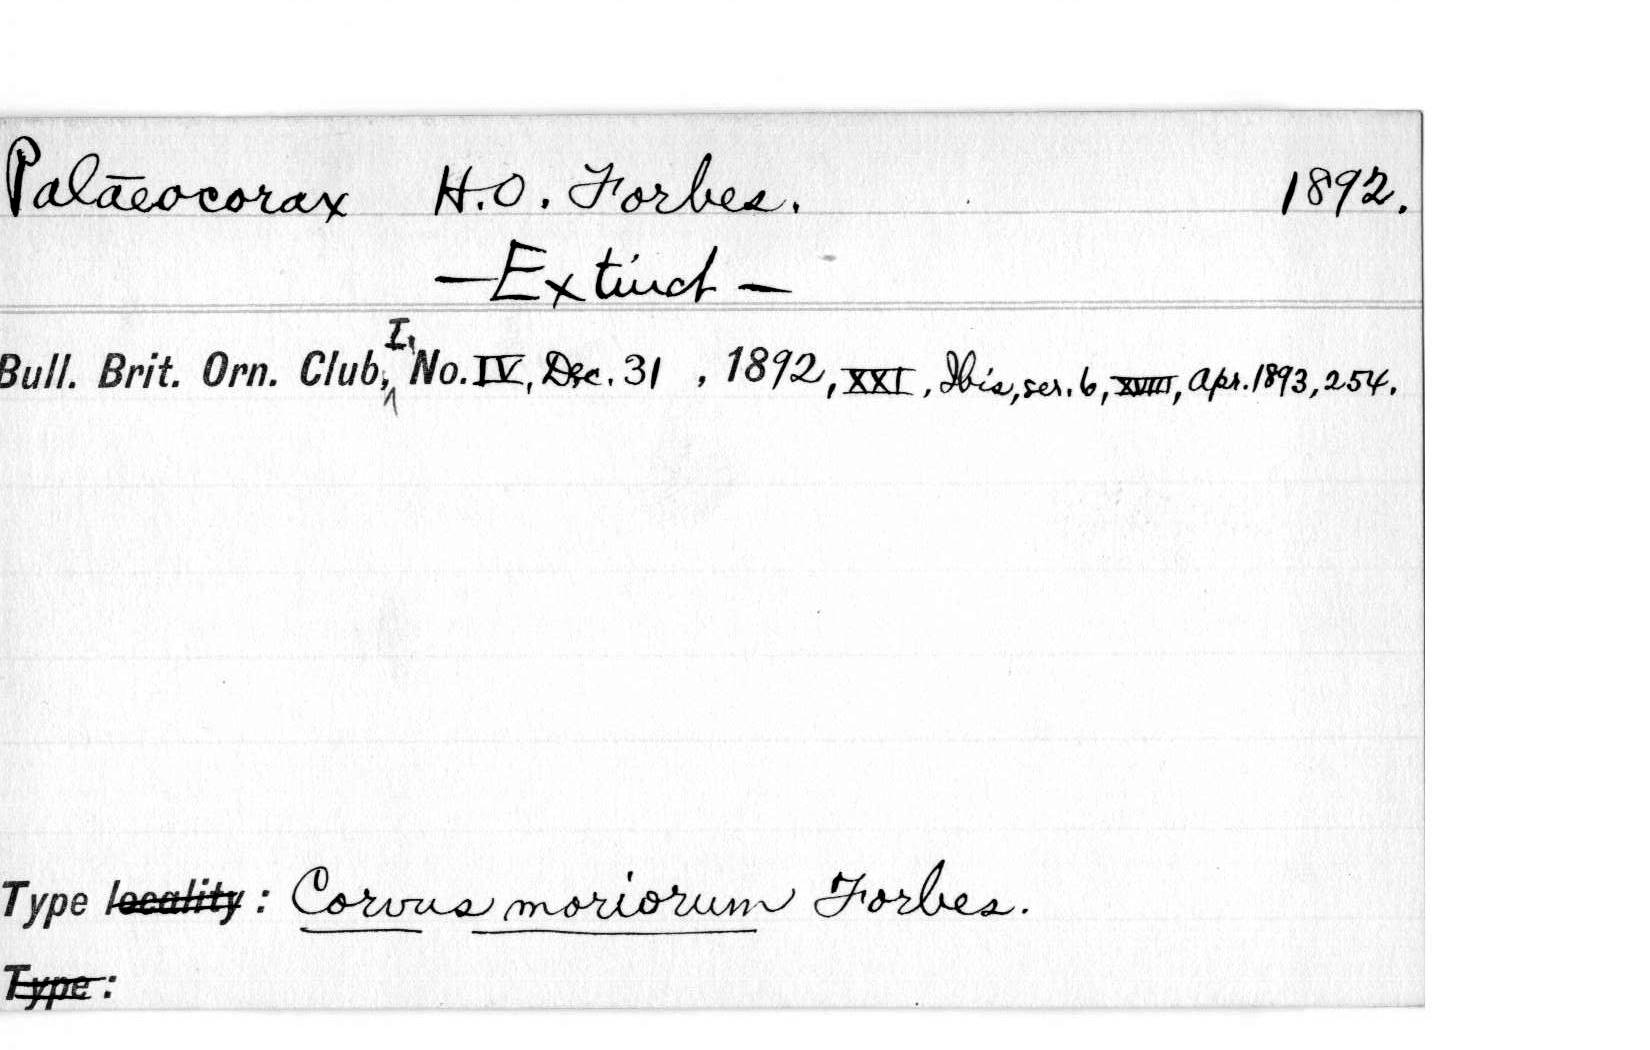 Palāeocorax H.O. Forbes. 1892.
—Extinct—
Bull. Brit. Orn. Club, I, No. IV, Dec. 31, 1892, XXI, Ibis, ser. 6, XVIII, Apr. 1893, 254.
Type locality: Corvus moriorum Forbes.
Type: